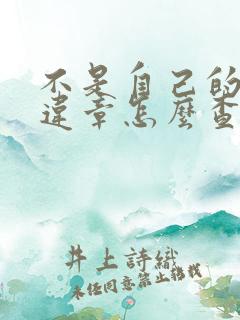 不是自己的
違章怎麼查
井上詩織
未经同意禁止搬拔